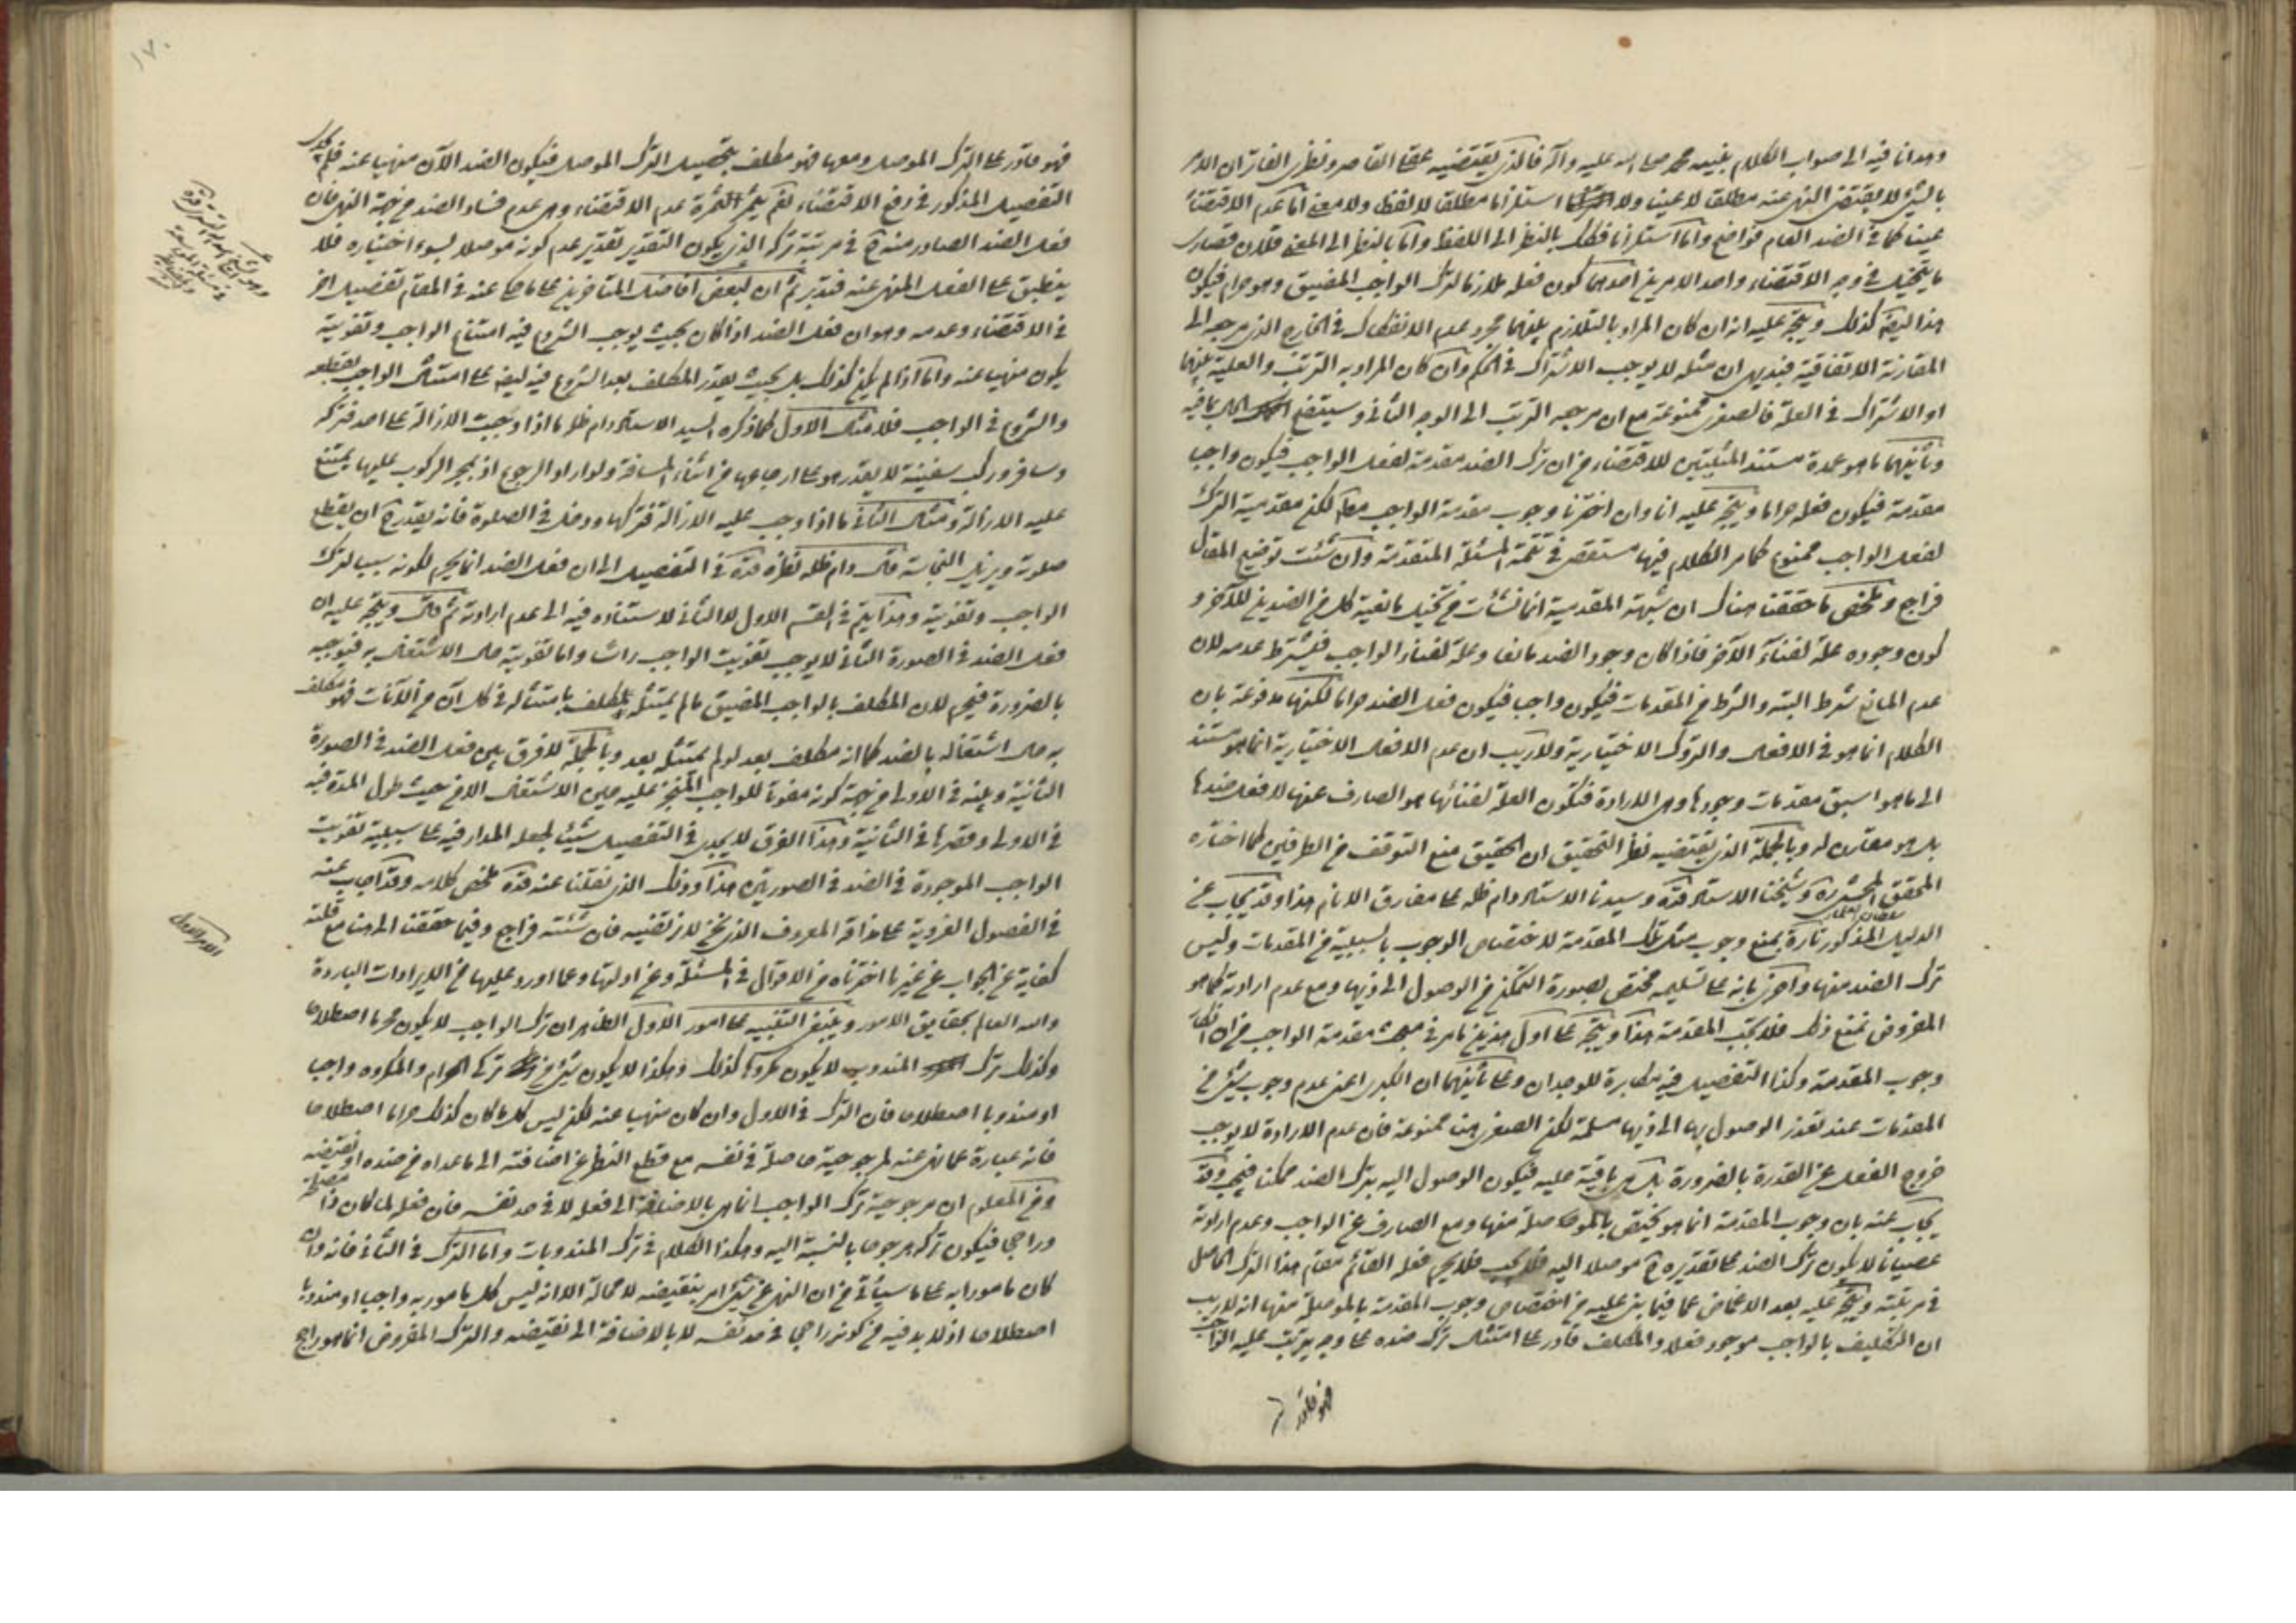 وهدانا فيه الى صواب الكلام بنبيه محمد صلى الله عليه وآله فالذى يقتضيه عقلى القاصر ونظرى الفاتر ان الامر
بالشئ لا يقتضى النهى عنه مطلقا لا عينا ولا استلزاما مطلقا لا لفظا ولا معنى اما عدم الاقتضاء
عينا كما فى الضد العام فواضح واما استلزاما فكذلك بالنظر الى اللفظ واما بالنظر الى المعنى فلان قصارى
ما يتخيل فى وجه الاقتضاء واحد الامرين احدهما كون فعله ملازما لترك الواجب المضيق وهو حرام فيكون
هذا ايضا كذلك ويتجه عليه انه ان كان المراد بالتلازم بينهما مجرد عدم الانفكاك فى الخارج الذى مرجعه الى
المقارنة الاتفاقية فبديهى ان مثله لا يوجب الاشتراك فى الحكم وان كان المراد به الترتب والعلية بينهما
او الاشتراك فى العلة فالصغرى ممنوعة مع ان مرجع الترتب الى الوجه الثانى وسيتضح الحال بما فيه
وثانيهما ما هو عمدة مستند المثبتين للاقتضاء من ان ترك الضد مقدمة لفعل الواجب فيكون واجبا
مقدمة فيكون فعله حراما ويتجه عليه انا وان اخترنا وجوب مقدمة الواجب معا لكن مقدمية الترك
لفعل الواجب ممنوع كما مر الكلام فيها مستقصى فى تتمة المسئلة المتقدمة وان شئت توضيح المقال
فراجع وملخص ما حققنا هناك ان شبهة المقدمية انما نشأت من تخيل مانعية كل من الضدين للآخر و
كون وجوده علة لفناء الآخر فاذا كان وجود الضد مانعا وعلة لفناء الواجب فيشترط عدمه لان
عدم المانع شرط البتة والشرط من المقدمات فيكون واجبا فيكون فعل الضد حراما لكنها مدفوعة بان
الكلام انما هو فى الافعال والتروك الاختيارية ولا ريب ان عدم الافعال الاختيارية انما هو مستند
الى ما هو اسبق مقدمات وجودها وهى الارادة فتكون العلة لفنائها هو الصارف عنها لا فعل ضدها
بل هو مقارن له وبالجملة الذى يقتضيه نظر التحقيق ان الحقيق منع التوقف من الطرفين كما اختاره
المحقق وشيخنا الاستاد قده وسيدنا الاستاد دام ظله على مفارق الانام هذا وقد يجاب عن
الدليل المذكور تارة بمنع وجوب مثل تلك المقدمة لاختصاص الوجوب بالسببية من المقدمات وليس
ترك الضد منها واخرى بانه على تسليمه مختص بصورة التمكن من الوصول الى ذيها ومع عدم ارادته كما هو
المفروض يمتنع ذلك فلا تجب المقدمة هذا ويتجه على اول هذين ما مر فى مبحث مقدمة الواجب من ان انكار
وجوب المقدمة وكذا التفصيل فيه مكابرة للوجدان وعلى ثانيهما ان الكبرى اعنى عدم وجوب شئ من
المقدمات عند تعذر الوصول بها الى ذيها مسلمة لكن الصغرى هنا ممنوعة فان عدم الارادة لا يوجب
خروج الفعل عن القدرة بالضرورة بل هى باقية عليه فيكون الوصول اليه بترك الضد ممكنا فيجب وقد
يجاب عنه بان وجوب المقدمة انما هو يختص بالموصلة منها ومع الصارف عن الواجب وعدم ارادته
عصيانا لا يكون ترك الضد على تقديره ح موصلا اليه فلا يجب فلا يحرم فعله القائم مقام هذا الترك الحاصل
فى مرتبته ويتجه عليه بعد الاغماض عما فيما بنى عليه من اختصاص وجوب المقدمة بالموصلة منها انه لا ريب
ان التكليف بالواجب موجود فعلا والمكلف قادر على امتثال ترك ضده على وجه يترتب عليه الواجب
فهو قادر
١٧٠
فهو قادر على الترك الموصل ومعها فهو مكلف بتحصيل الترك الموصل فيكون الضد الآن منهيا عنه فلم يجد
التفصيل المذكور فى رفع الاقتضاء نعم يثمر الثمرة عدم الاقتضاء وهى عدم فساد الضد من جهة النهى فان
فعل الضد الصادر منه ح فى مرتبة تركه الذى يكون التقدير تقدير عدم كونه موصلا لسوء اختياره فلا
ينطبق على الفعل المنهى عنه فتدبر ثم ان لبعض افاضل المتاخرين على ما حكى عنه فى المقام تفصيل اخر
فى الاقتضاء وعدمه وهو ان فعل الضد اذا كان بحيث يوجب الشروع فيه امتناع الواجب وتفويته
يكون منهيا عنه واما اذا لم يكن كذلك بل بحيث يقدر المكلف بعد الشروع فيه ايضا على امتثال الواجب بقطعه
والشروع فى الواجب فلا مثال الاول كما ذكره السيد الاستاد دام ظله ما اذا وجبت الازالة على احد فتركه
وسافر وركب سفينة لا يقدر هو على ارجاعها من اثناء المسافة ولو اراد الرجوع اذ بمجرد الركوب عليها يمتنع
عليه الازالة ومثال الثانى ما اذا وجب عليه الازالة فتركها ودخل فى الصلوة فانه يقدر ح ان يقطع
صلوته ويزيل النجاسة قال دام ظله نظره قده فى التفصيل الى ان فعل الضد انما يحرم لكونه سببا لترك
الواجب وتفويته وهذا يتم فى القسم الاول لا الثانى لاستناده فيه الى عدم ارادته ثم قال ويتجه عليه ان
فعل الضد فى الصورة الثانى لا يوجب تفويت الواجب راسا واما تفويته حال الاشتغال به فيوجبه
بالضرورة فيحرم لان المكلف بالواجب المضيق ما لم يمتثله مكلف بامتثاله فى كل آن من الآنات فهو مكلف
به حال اشتغاله بالضد كما انه مكلف بعد لو لم يمتثله بعد وبالجملة لا فرق بين فعل الضد فى الصورة
الثانية وبينه فى الاولى من جهة كونه مفوتا للواجب المنجز عليه حين الاشتغال الا من حيث طول المدة فيه
فى الاولى وقصرها فى الثانية وهذا الفرق لا يجدى فى التفصيل شيئا لجعله المدار فيه على سببية تفويت
الواجب الموجودة فى الضد فى الصورتين هذا وذلك الذى نقلنا عنه قده ملخص كلامه وقد اجاب عنه
فى الفصول الغروية على مذاقه المعروف الذى نحن لا نرتضيه فان شئته فراجع وفيما حققنا الى هنا مع قلته
كفاية عن الجواب عن غير ما اخترناه من الاقوال فى المسئلة وعن ادلتها وعما اورد عليها من الايرادات الباردة
والله العالم بحقايق الامور وينبغى التنبيه على امور الاول الظاهر ان ترك الواجب لا يكون محرما اصطلاحا
وكذلك ترك المندوب لا يكون مكروها كذلك وهكذا لا يكون شئ من ترك الحرام والمكروه واجبا
او مندوبا اصطلاحا فان الترك فى الاول وان كان منهيا عنه لكن ليس كلما كان كذلك حراما اصطلاحا
فانه عبارة عما نهى عنه لمرجوحية حاصلة فى نفسه مع قطع النظر عن اضافته الى ما عداه من ضده او نقيضه
ومن المعلوم ان مرجوحية ترك الواجب انما هى بالاضافة الى فعله لا فى حد نفسه فان فعله لما كان ذا مصلحة
وراجحا فيكون تركه مرجوحا بالنسبة اليه وهكذا الكلام فى ترك المندوبات واما الترك فى الثانى فانه وان
كان مامورا به على ما سيأتى من ان النهى عن شئ امر بنقيضه لا محالة الا انه ليس كل مامور به واجبا او مندوبا
اصطلاحا اذ لا بد فيه من كونه راجحا فى حد نفسه لا بالاضافة الى نقيضه والترك المفروض انما هو راجح
الامر الاول